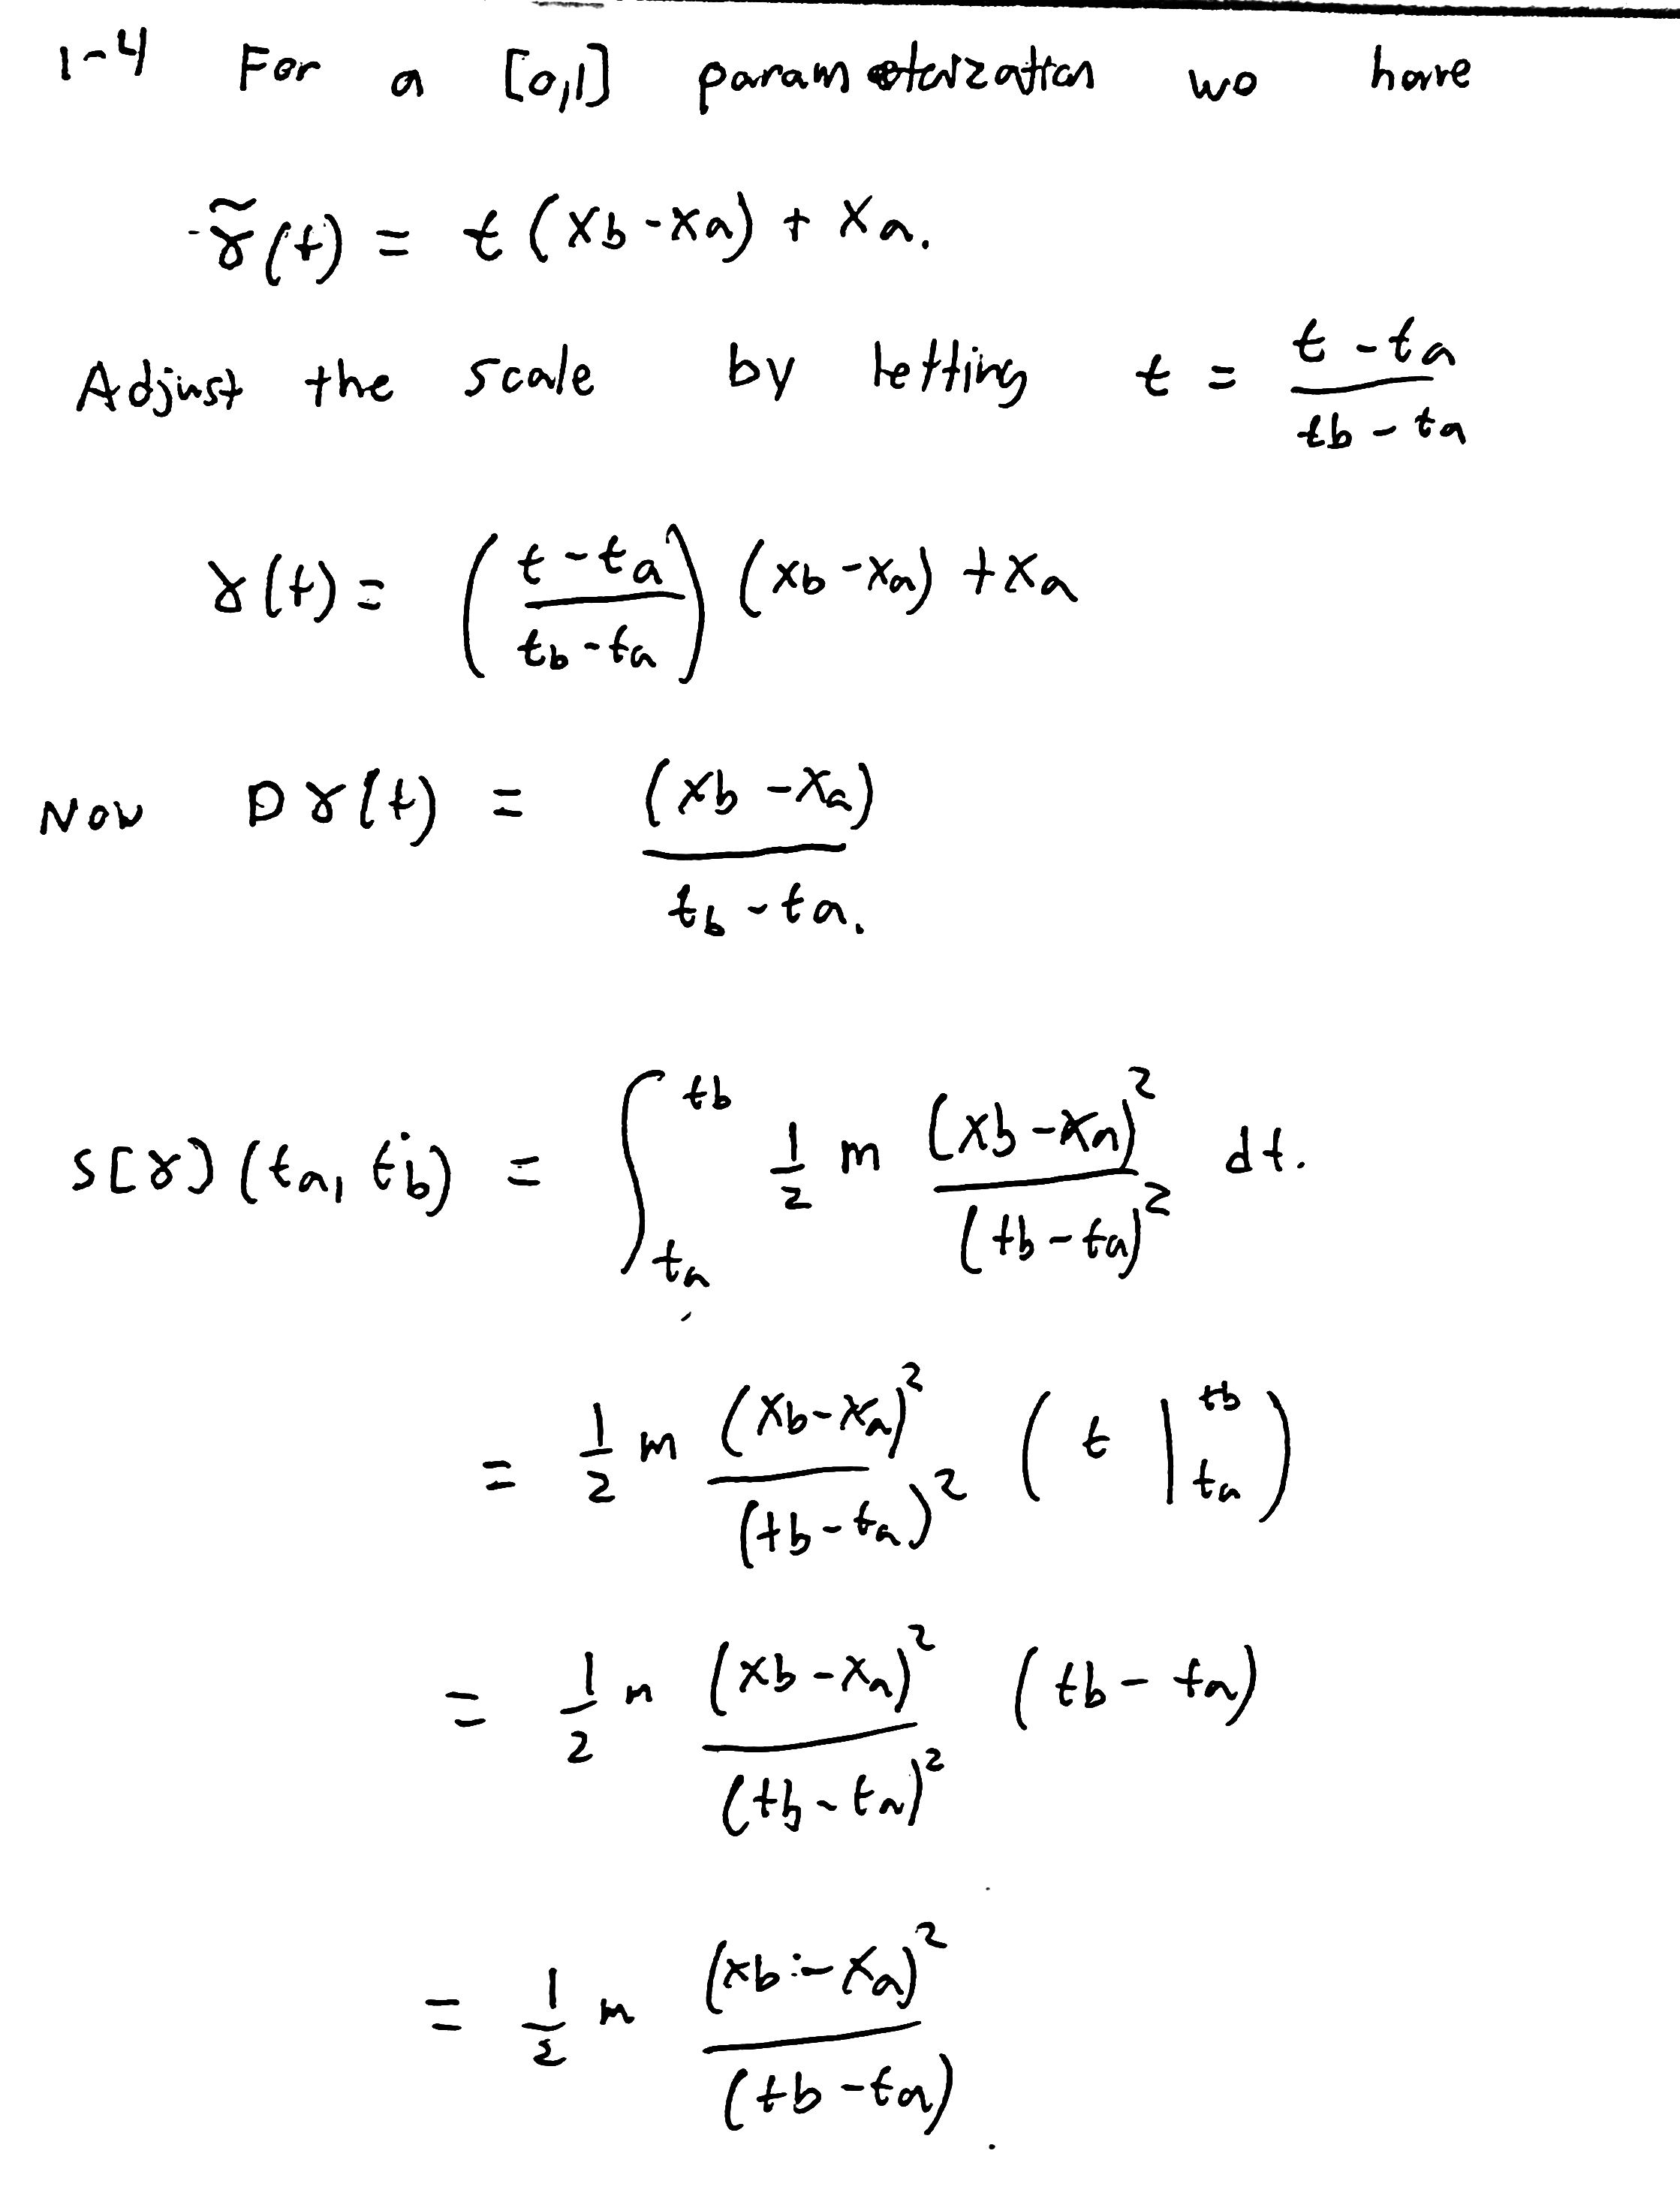 1-4 For a [0,1] parameterization we have
γ̃(t) = t(xb - xa) + xa.
Adjust the scale by letting t = (t - ta)/(tb - ta)
γ(t) = ((t - ta)/(tb - ta)) (xb - xa) + xa
Now Dγ(t) = (xb - xa)/(tb - ta).
S[γ](ta, tb) = ∫_ta^tb 1/2 m (xb - xa)²/(tb - ta)² dt.
= 1/2 m (xb - xa)²/(tb - ta)² (t |_ta^tb)
= 1/2 m (xb - xa)²/(tb - ta)² (tb - ta)
= 1/2 m (xb - xa)²/(tb - ta).